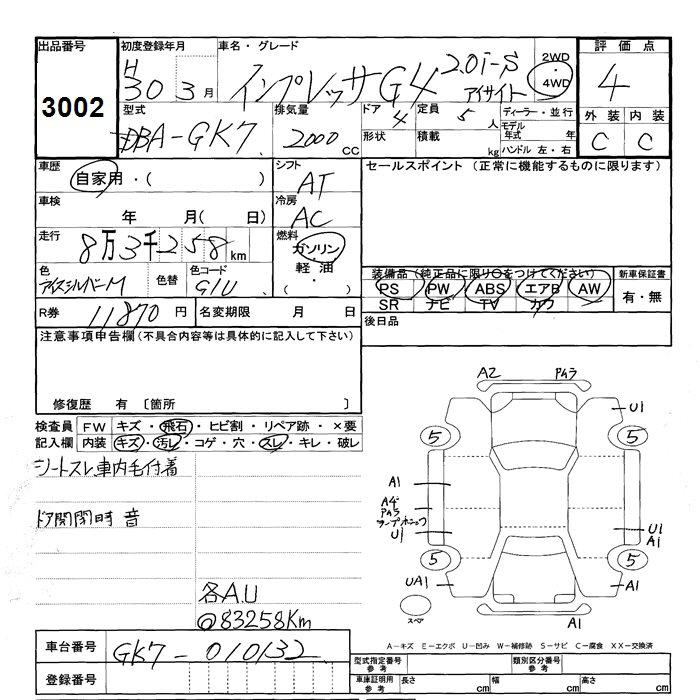 出品番号 初度登録年月 車名・グレード 評価点
3002
H 30 3月 インプレッサG4 2.0i-S アイサイト 2WD・4WD 4
型式 排気量 ドア 4 定員 5人 ディーラー・並行 外装 内装
DBA-GK7 2000 CC 形状 積載 kg モデル年式 年 C C
ハンドル 左・右
車歴 シフト セールスポイント (正常に機能するものに限ります)
自家用・( ) AT
車検 冷房
年 月( 日) AC
走行 燃料
8万3千258km ガソリン・軽油・( )
色 色替 色コード 装備品(純正品に限り○をつけてください) 新車保証書
アイスシルバーM G1U PS PW ABS エアB AW 有・無
SR ナビ TV カワ
R券 11870円 名変期限 月 日 後日品
注意事項申告欄(不具合内容等は具体的に記入して下さい)
修復歴 有 〔箇所 〕
検査員 FW キズ・飛石・ヒビ割・リペア跡・×要
記入欄 内装 キズ・汚レ・コゲ・穴・スレ・キレ・破レ
シートスレ車内毛付着
ドア開閉時 音
各A.U
@83258Km
A2
U1
5 5
A1
A4
U1
U1
A1
5 5
UA1
A1
スペア
A1
A-キズ E-エクボ U-凹み W-補修跡 S-サビ C-腐食 XX-交換済
車台番号 GK7-010132
登録番号
型式指定番号 参考 類別区分番号 参考
車庫証明用 参考 長さ cm 幅 cm 高さ cm